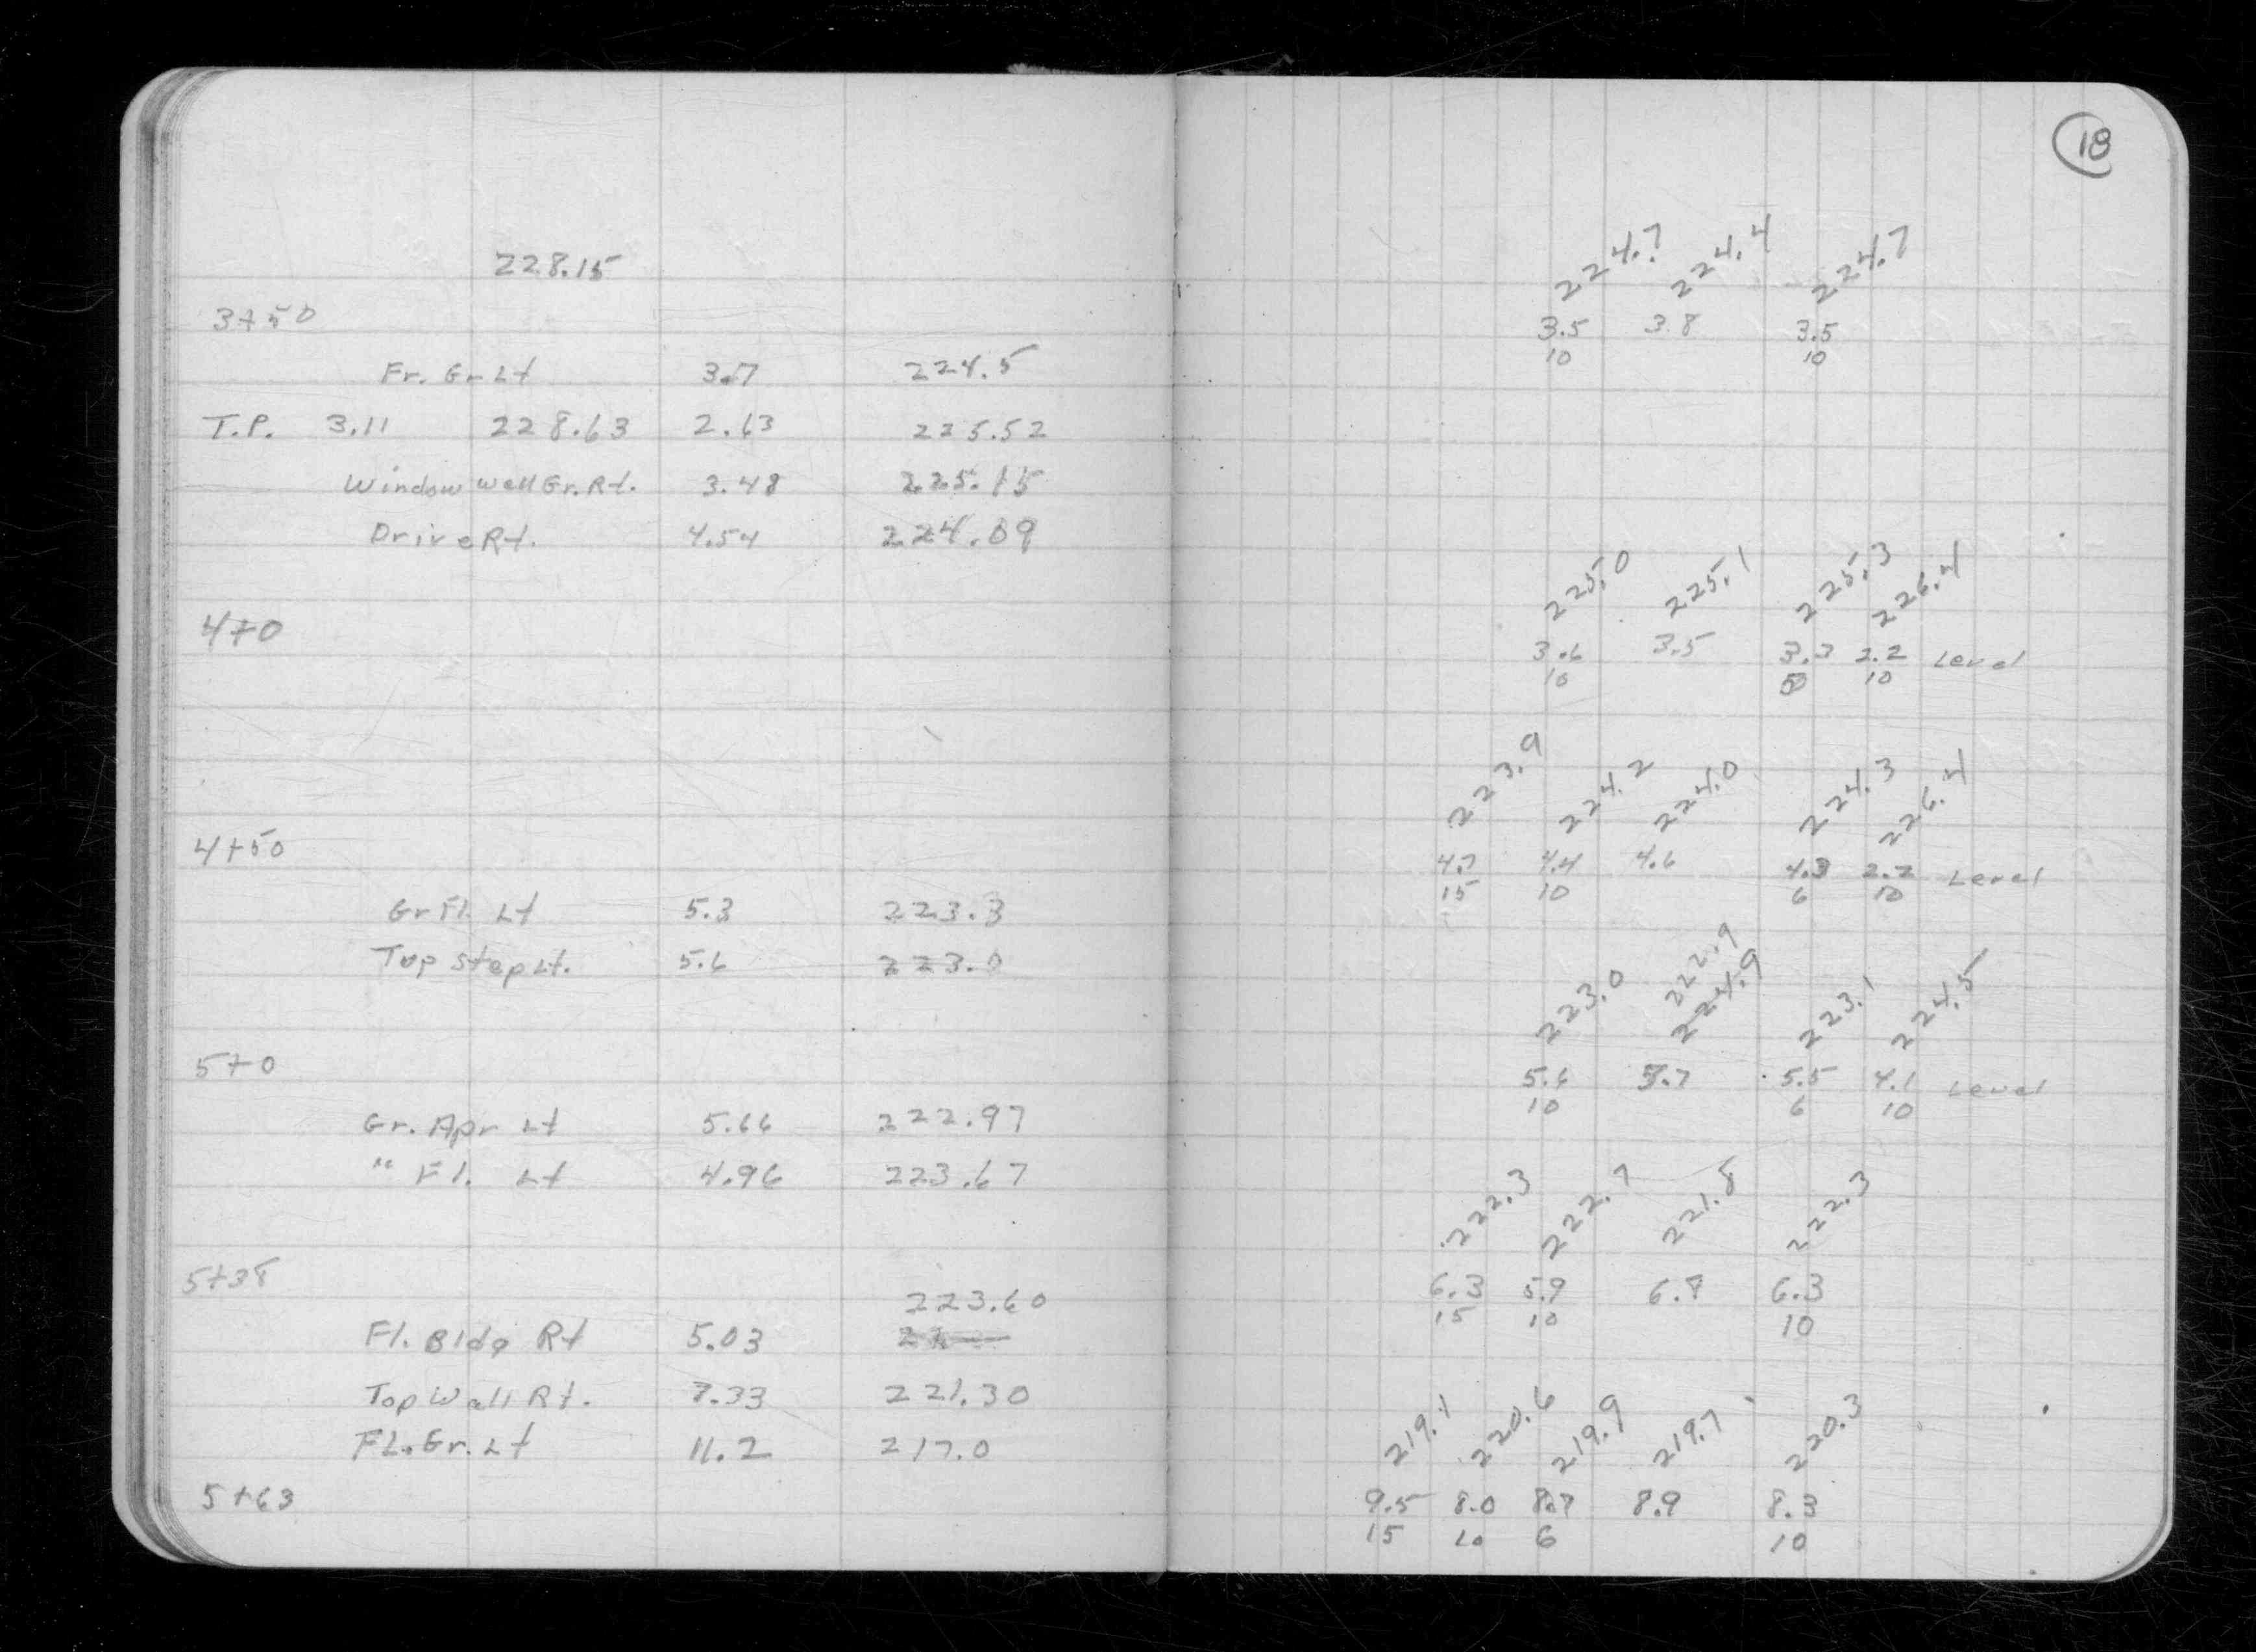 18
228.15
3+50
Fr. Gr Lt 3.7 224.5
T.P. 3.11 228.63 2.63 225.52
Window Well Gr. Rt. 3.48 225.15
Drive Rt. 4.54 224.09
4+0
4+50
Gr Fl. Lt 5.3 223.3
Top Step Lt. 5.6 223.0
5+0
Gr. Apr Lt 5.66 222.97
" Fl. Lt 4.96 223.67
5+38
223.60
Fl. Bldg Rt 5.03
Top Wall Rt. 7.33 221.30
FL. Gr. Lt 11.2 217.0
5+63
224.7 224.4 224.7
3.5 3.8 3.5
10 10
225.0 225.1 225.3 226.4
3.6 3.5 3.3 2.2 Level
10 10
223.9 224.2 224.0 224.3 226.4
4.7 4.4 4.6 4.3 2.2 Level
15 10 6 10
222.9
223.0 224.9 223.1 224.5
5.6 5.7 5.5 4.1 Level
10 6 10
222.3 222.7 221.8 222.3
6.3 5.9 6.8 6.3
15 10 10
219.1 220.6 219.9 219.7 220.3
9.5 8.0 8.7 8.9 8.3
15 10 6 10